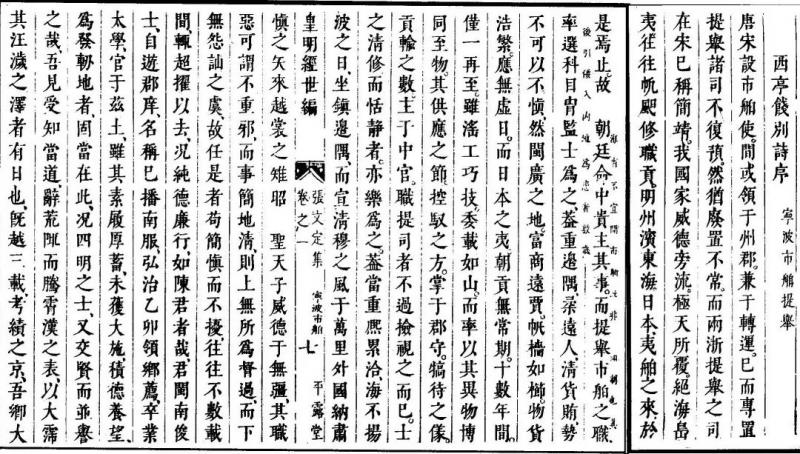 西亭餞別詩序 寧波市舶提舉
唐宋設市舶使間或領于州郡兼于轉運已而專置
提舉諸司不復預然猶廢置不常而兩浙提舉之司
在宋已稱簡靖我國家威德旁流極天所覆絕海島
夷往往帆颿修職貢明州濱東海日本夷舶之來於
是焉止故 朝廷命中貴主其事而提舉市舶之職
後引倭入內地為患者
率選科目冑監士為之葢重邊隅柔遠人清貨賄勢
不可以不慎然閩廣之地富商遠賈帆檣如櫛物貨
浩繁應無虛日而日本之夷朝貢無常期十數年間
僅一再至雖滛工巧技委載如山而率以其異物博
同至物其供應之節控馭之方掌于郡守犒待之儀
貢輸之數主于中官職提司者不過檢視之而已士
之清修而恬靜者亦樂為之葢當重熈累洽海不揚
波之日坐鎮邊隅而宣清穆之風于萬里外國納肅
皇明經世編 張文定集 卷之一 寧波市舶 七 平露堂
慎之矢來越裳之雉昭 聖天子威德于無疆其職
惡可謂不重邪而事簡地清則上無所為督過而下
無怨訕之虞故任是者苟簡慎而不擾往往不數載
間輒超擢以去况純德廉行如陳君者哉君閩南俊
士自遊郡庠名稱已播南服弘治乙卯領鄉薦卒業
太學官于茲土雖其素履厚蓄未獲大施積德養望
為發軔地者固當在此况四明之士又交賢而並譽
之哉吾見受知當道辭荒陬而騰霄漢之表以大霈
其汪濊之澤者有日也旣越三載考績之京吾鄉大